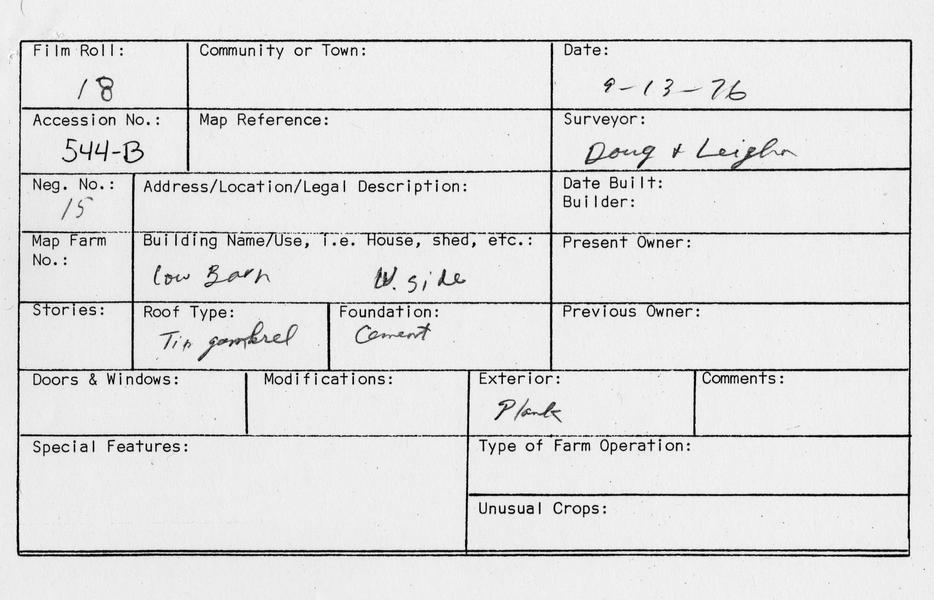 Film Roll:
18
Community or Town:
Date:
9-13-76
Accession No.:
544-B
Map Reference:
Surveyor:
Doug + Leigh
Neg. No.:
15
Address/Location/Legal Description:
Date Built:
Builder:
Map Farm
No.:
Building Name/Use, i.e. House, shed, etc.:
Cow Barn W. side
Present Owner:
Stories:
Roof Type:
Tin gambrel
Foundation:
Cement
Previous Owner:
Doors & Windows:
Modifications:
Exterior:
Plank
Comments:
Special Features:
Type of Farm Operation:
Unusual Crops: